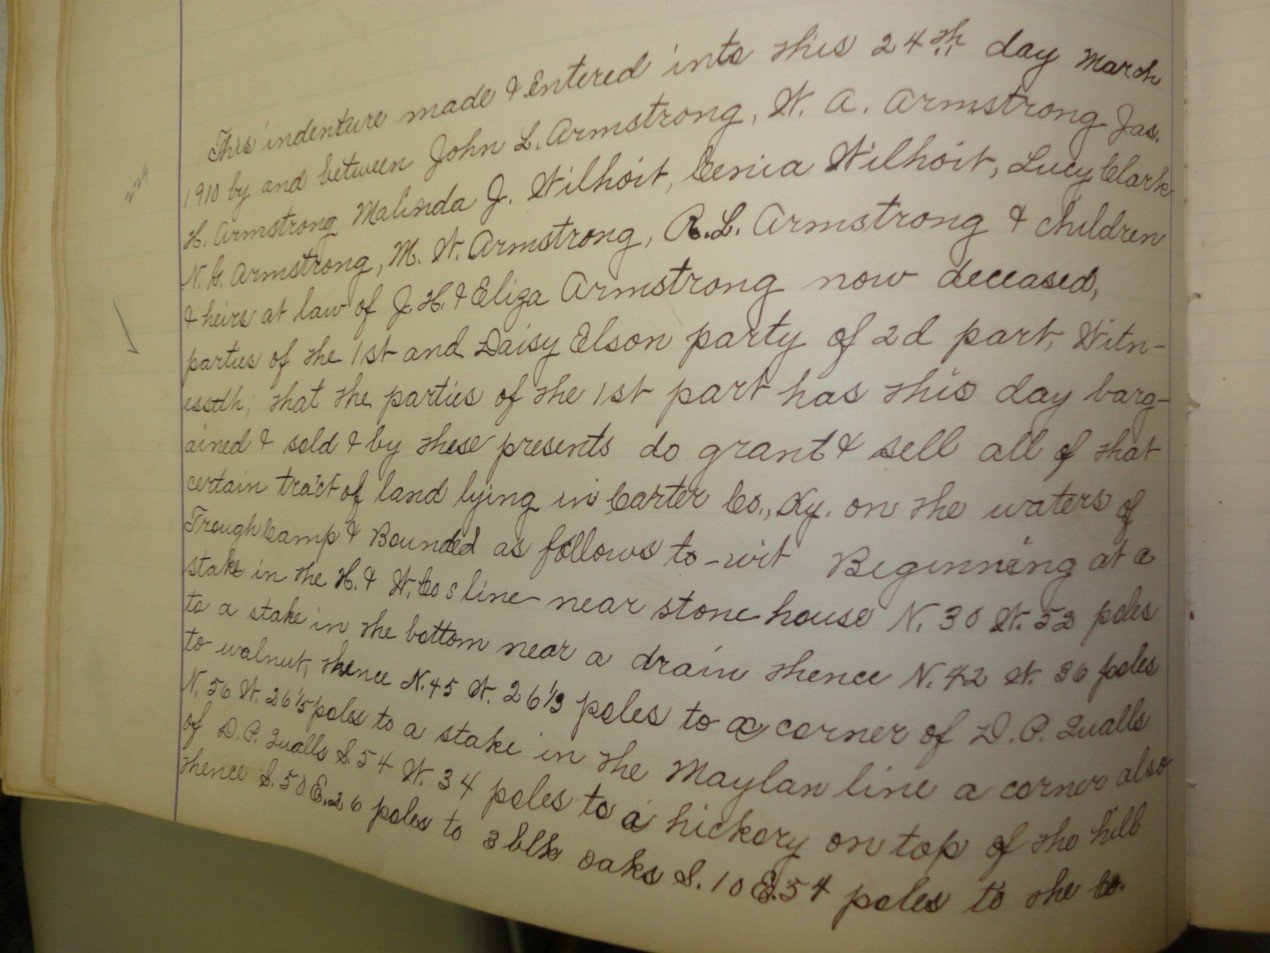 This indenture made & Entered into this 24th day March
1910 by and between John L. Armstrong, W. A. Armstrong Jas.
H. Armstrong Malinda J. Wilhoit, Cenia Wilhoit, Lucy Clark
N. G. Armstrong, M. W. Armstrong, R. L. Armstrong & children
& heirs at law of J. H. & Eliza Armstrong now deceased,
parties of the 1st and Daisy Elson party of 2d part, Witn-
essth; that the parties of the 1st part has this day barg-
ained & sold & by these presents do grant & sell all of that
certain tract of land lying in Carter Co., Ky. on the waters of
Trough Camp & Bounded as follows to-wit Beginning at a
stake in the H. & W. Cos line near stone house N. 30 W. 53 poles
to a stake in the bottom near a drain thence N. 42 W. 36 poles
to walnut, thence N. 45 W. 26 1/3 poles to a corner of D. P. Qualls
N. 56 W. 26 1/5 poles to a stake in the Maylan line a corner also
of D. P. Qualls S. 54 W. 34 poles to a hickory on top of the hill
thence S. 50 E. 26 poles to 3 blk oaks S. 10 E. 54 poles to the Co.